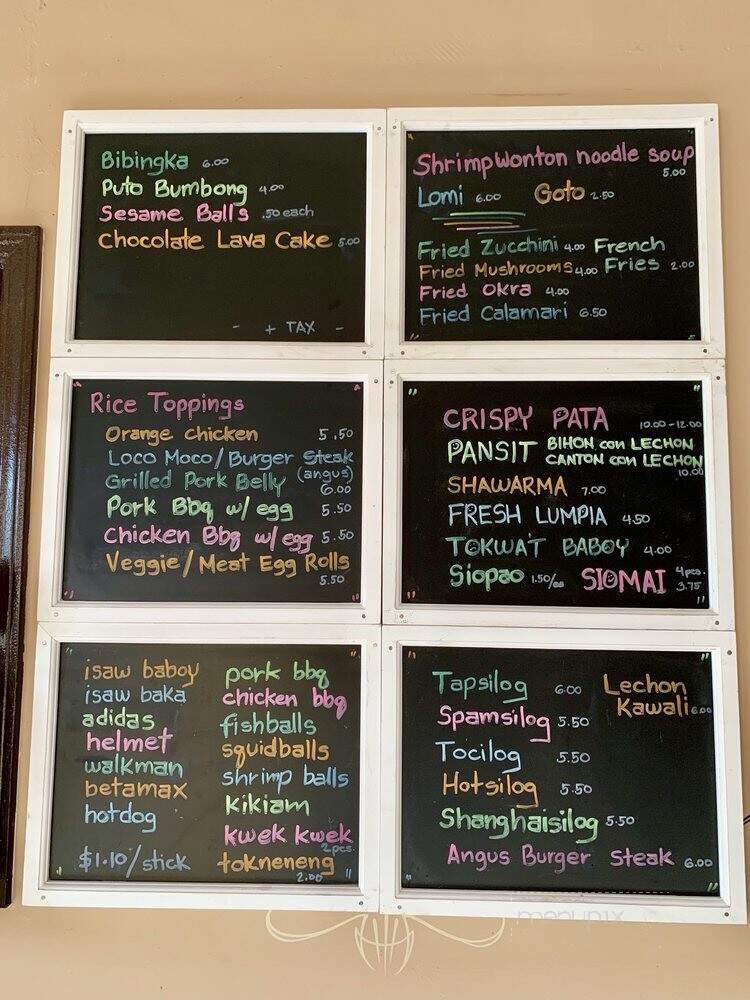 Bibingka 6.00
Puto Bumbong 4.00
Sesame Balls .50 each
Chocolate Lava Cake 5.00
- + TAX -
Shrimp Wonton noodle soup
5.00
Lomi 6.00 Goto 2.50
Fried Zucchini 4.00 French
Fried Mushrooms 4.00 Fries 2.00
Fried Okra 4.00
Fried Calamari 6.50
Rice Toppings
Orange chicken 5.50
Loco Moco/Burger Steak
(angus)
Grilled Pork Belly 6.00
Pork Bbq w/ egg 5.50
Chicken Bbq w/ egg 5.50
Veggie/Meat Egg Rolls
5.50
CRISPY PATA 10.00-12.00
PANSIT BIHON con LECHON
CANTON con LECHON
10.00
SHAWARMA 7.00
FRESH LUMPIA 4.50
TOKWA'T BABOY 4.00
Siopao 1.50/ea SIOMAI 4pcs.
3.75
isaw baboy
isaw baka
adidas
helmet
walkman
betamax
hotdog
$1.10/stick
pork bbq
chicken bbq
fishballs
squidballs
shrimp balls
kikiam
kwek kwek
2pcs.
tokneneng
2.00
Tapsilog 6.00
Spamsilog 5.50
Tocilog 5.50
Hotsilog 5.50
Shanghaisilog 5.50
Angus Burger Steak 6.00
Lechon
Kawali 6.00
menupix